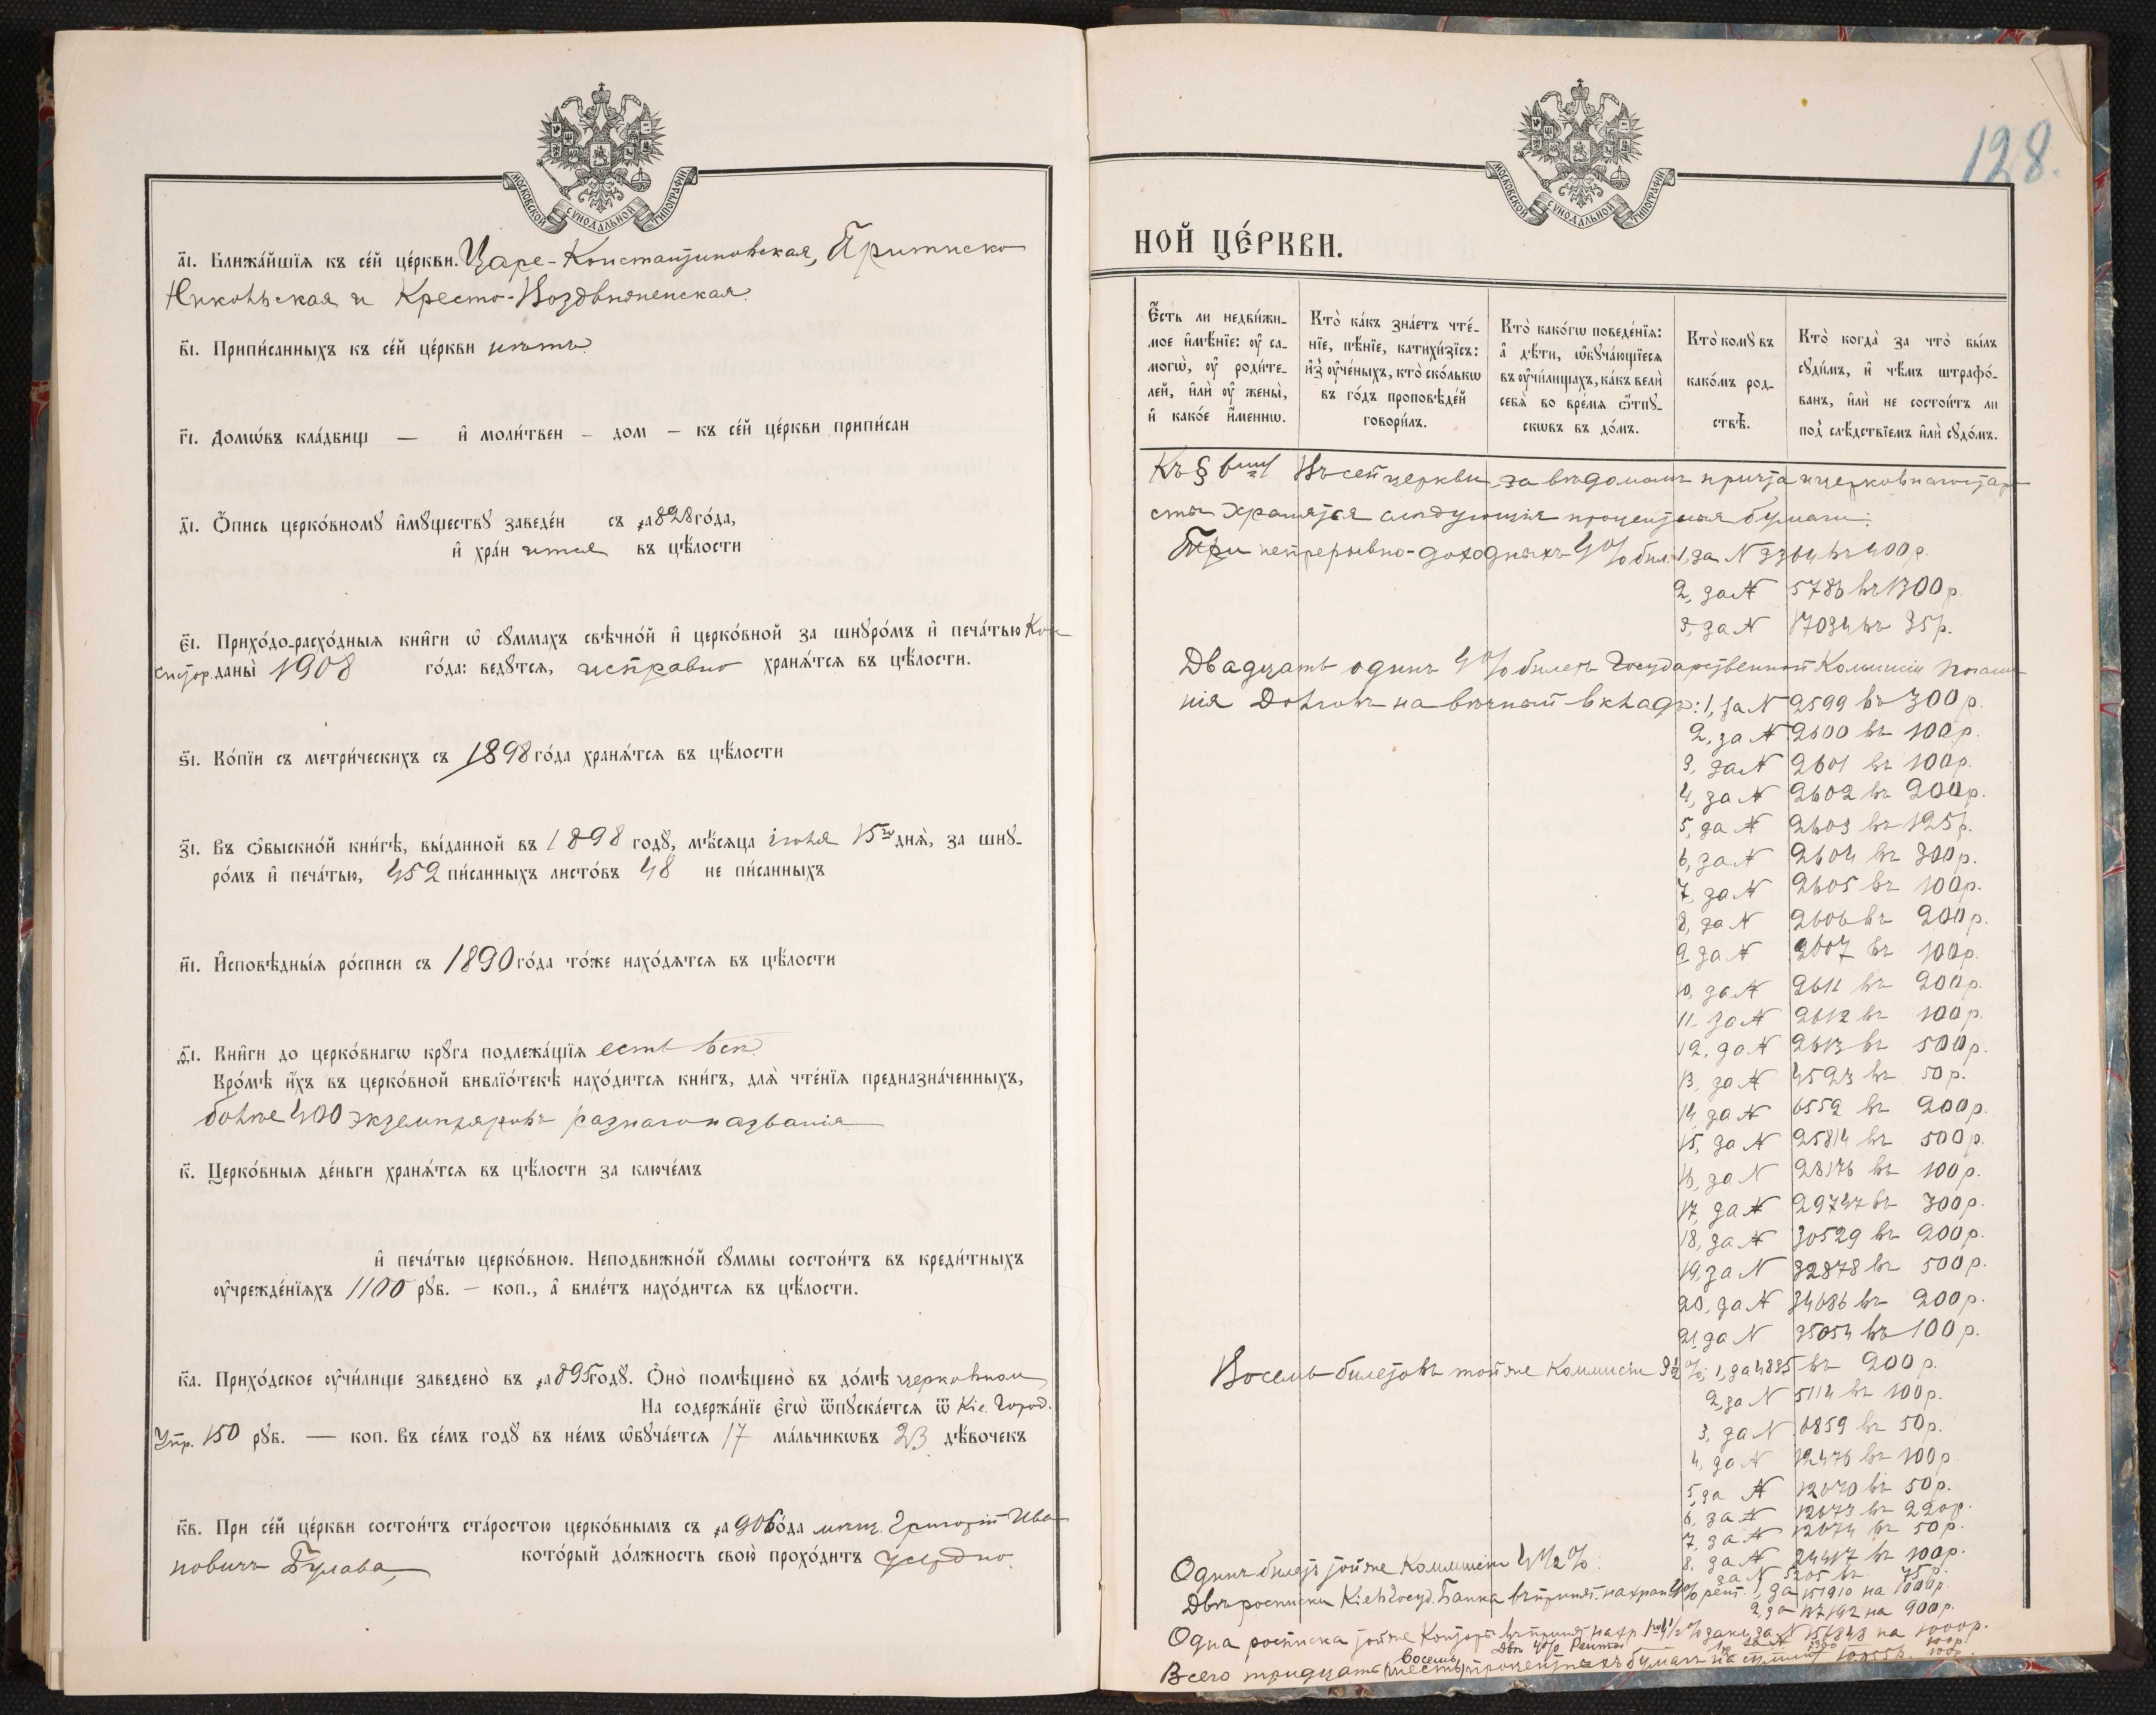 МОСКОВСКОЙ СѴНОДАЛЬНОЙ ТИПОГРАФІИ
а҃і. Ближа́йшїѧ къ се́й це́ркви. Царе-Константиновская, Притиско
Никольская и Кресто-Воздвиженская.
в҃і. Припи́санныхъ къ се́й це́ркви нѣтъ.
г҃і. Домѡ́въ кла́дбищ — и҆ моли́твен – дом – къ се́й це́ркви припи́сан
д҃і. Ѻ҆́пись церко́вномꙋ и҆мꙋ́ществꙋ заведе́н съ ҂а828 го́да,
и҆ хра́н ится въ цѣ́лости
є҃і. Прихо́до-расхо́дныѧ кни̑ги ѡ҆ сꙋ́ммахъ свѣчно́й и҆ церко́вной за шнꙋро́мъ и҆ печа́тью Кон-
систор. даны̀ 1908 го́да: ведꙋ́тсѧ, исправно хранѧ́тсѧ въ цѣ́лости.
ѕ҃і. Ко́пїи съ метри́ческихъ съ 1898 го́да хранѧ́тсѧ въ цѣ́лости
з҃і. Въ ѻ҆быскно́й кни́гѣ, вы́данной въ 1898 годꙋ̀, мѣ́сѧца іюня 15го днѧ̀, за шнꙋ-
ро́мъ и҆ печа́тью, 452 пи́санныхъ листо́въ 48 не пи́санныхъ
и҃і. И҆сповѣ́дныѧ ро́списи съ 1890 го́да то́же нахо́дѧтсѧ въ цѣ́лости
ѳ҃і. Кни̑ги до церко́внагѡ крꙋ́га подлежа́щїѧ есть всѣ.
Кро́мѣ и҆́хъ въ церко́вной библїо́текѣ нахо́дитсѧ кни́гъ, длѧ̀ чте́нїѧ предназна́ченныхъ,
болѣе 400 экземпляровъ разнаго названія
к҃. Церко́вныѧ де́ньги хранѧ́тсѧ въ цѣ́лости за ключе́мъ
и҆ печа́тью церко́вною. Неподвижно́й сꙋ́ммы состои́тъ въ креди́тныхъ
ᲂу҆чрежде́нїѧхъ 1100 рꙋб. — коп., а҆ биле́тъ нахо́дитсѧ въ цѣ́лости.
к҃а. Прихо́дское ᲂу҆чи́лище заведено̀ въ ҂а895 годꙋ̀. Ѻ҆но̀ помѣщено̀ въ до́мѣ церковном
На содержа́нїе є҆гѡ̀ ѿпꙋска́етсѧ ѿ Кіе. Город.
Упр. 150 рꙋб. — коп. Въ се́мъ годꙋ̀ въ не́мъ ѡ҆бꙋча́етсѧ 17 ма́льчикѡвъ 23 дѣ́вочекъ
к҃в. При се́й це́ркви состои́тъ ста́ростою церко́внымъ съ ҂а906 го́да мѣщ. Григорій Ива-
новичъ Булава, кото́рый до́лжность свою̀ прохо́дитъ усердно.
МОСКОВСКОЙ СѴНОДАЛЬНОЙ ТИПОГРАФІИ
128.
НОЙ ЦЕ́РКВИ.
Є҆́сть ли недви́жимое и҆мѣ́нїе: ᲂу҆ самогѡ̀, ᲂу҆ роди́телей, и҆лѝ ᲂу҆ жены̀, и҆ како́е и҆́меннѡ.
Кто̀ ка́къ зна́етъ чте́нїе, пѣ́нїе, катихи́зїсъ: и҆з̾ ᲂу҆че́ныхъ, кто̀ ско́лькѡ въ го́дъ проповѣ́дей говори́лъ.
Кто̀ како́гѡ поведе́нїѧ: а҆ дѣ́ти, ѡ҆бꙋча́ющїесѧ въ ᲂу҆чи́лищахъ, ка́къ велѝ себѧ̀ во вре́мѧ ѿпꙋскѡвъ въ до́мъ.
Кто̀ комꙋ̀ въ како́мъ родствѣ̀.
Кто̀ когда̀ за что̀ бы́лъ сꙋди́мъ, и҆ чѣ́мъ штрафо́ванъ, и҆лѝ не состои́тъ ли под̾ слѣ́дствїемъ и҆лѝ сꙋдо́мъ.
Къ § Въ сей церкви, за вѣдомомъ причта и церковнаго ста-
сты хранятся слѣдующія процентныя бумаги:
Три непрерывно-доходныхъ 4% бил. 1, за N 3364 въ 400 р.
2, за N 5786 въ 1300 р.
3, за N 17034 въ 35 р.
Двадцать одинъ 4% билетъ Государственной Коммисіи погаше-
нія Долговъ на вѣчный вкладъ: 1, за N 2599 въ 300 р.
2, за N 2600 въ 100 р.
3, за N 2601 въ 100 р.
4, за N 2602 въ 200 р.
5, за N 2603 въ 125 р.
6, за N 2604 въ 300 р.
7, за N 2605 въ 100 р.
8, за N 2606 въ 200 р.
9, за N 2607 въ 100 р.
10, за N 2611 въ 200 р.
11, за N 2612 въ 100 р.
12, за N 2613 въ 500 р.
13, за N 4523 въ 50 р.
14, за N 6552 въ 200 р.
15, за N 25814 въ 500 р.
16, за N 28176 въ 100 р.
17, за N 29747 въ 300 р.
18, за N 30529 въ 200 р.
19, за N 32878 въ 500 р.
20, за N 34686 въ 200 р.
21, за N 35054 въ 100 р.
Восемь билетовъ той же Коммисіи 3½ %: 1, за 4885 въ 200 р.
2, за N 5114 въ 100 р.
3, за N 6859 въ 50 р.
4, за N 12476 въ 100 р.
5, за N 12670 въ 50 р.
6, за N 12673 въ 220 р.
7, за N 12674 въ 50 р.
8, за N 24417 въ 100 р.
Одинъ билетъ той же Коммисіи 4 1/2 %: за N 5205 въ 75 р.
Двѣ росписки Кіев. Госуд. Банка въ принят. на хран. 4% рент. 1, за 151910 на 1000 р.
2, за 137192 на 900 р.
Одна росписка той же Конторы въ принят. на хр. за N 156848 на 1000 р.
Двѣ 4% Ренты
восемь
Всего тридцать (шесть) процентныхъ бумагъ на сумму